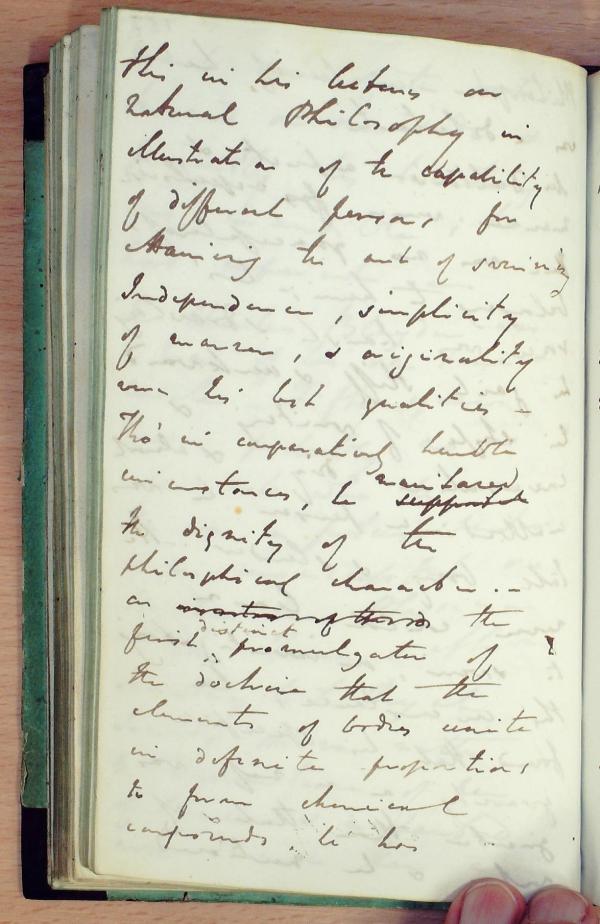 this in his lectures on
natural Philosophy in
illustration of the capability
of different persons for
attaining the art of
Independence, simplicity
of manner, & originality
were his best qualities –
Tho' in comparatively humble
circumstances, he maintained supported
the dignity of the
philosophical character. –
as the
first distinct promulgator of
the doctrine that the
elements of bodies unite
in definite proportions
to form chemical
compounds, he has